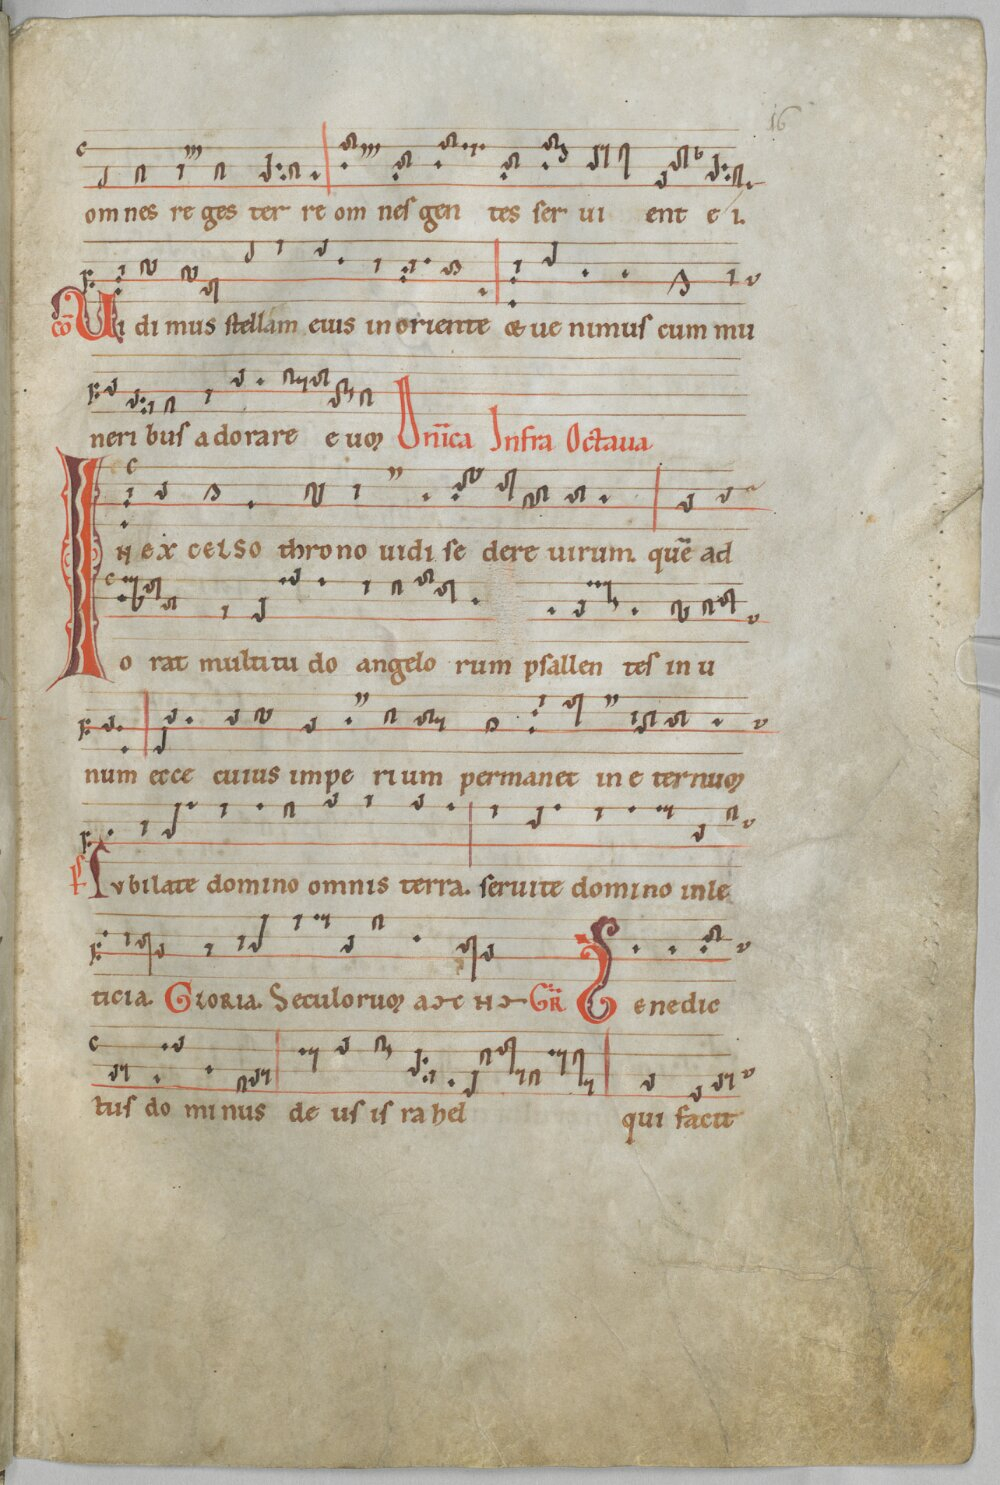 16
om nes re ges ter re om nes gen tes ser ui ent e i.
cō Ui di mus stellam eius in oriente & ue nimus cum mu
neri bus adorare e um Dn̄ica Infra Octaua
IN ex celso throno uidi se dere uirum quē ad
o rat multitu do angelo rum psallen tes in u
num ecce cuius impe rium permanet in e ternum
ps Iubilate domino omnis terra. seruite domino in le
ticia. Gloria. Seculorum amen GR Benedic
tus do minus de us is ra hel qui facit